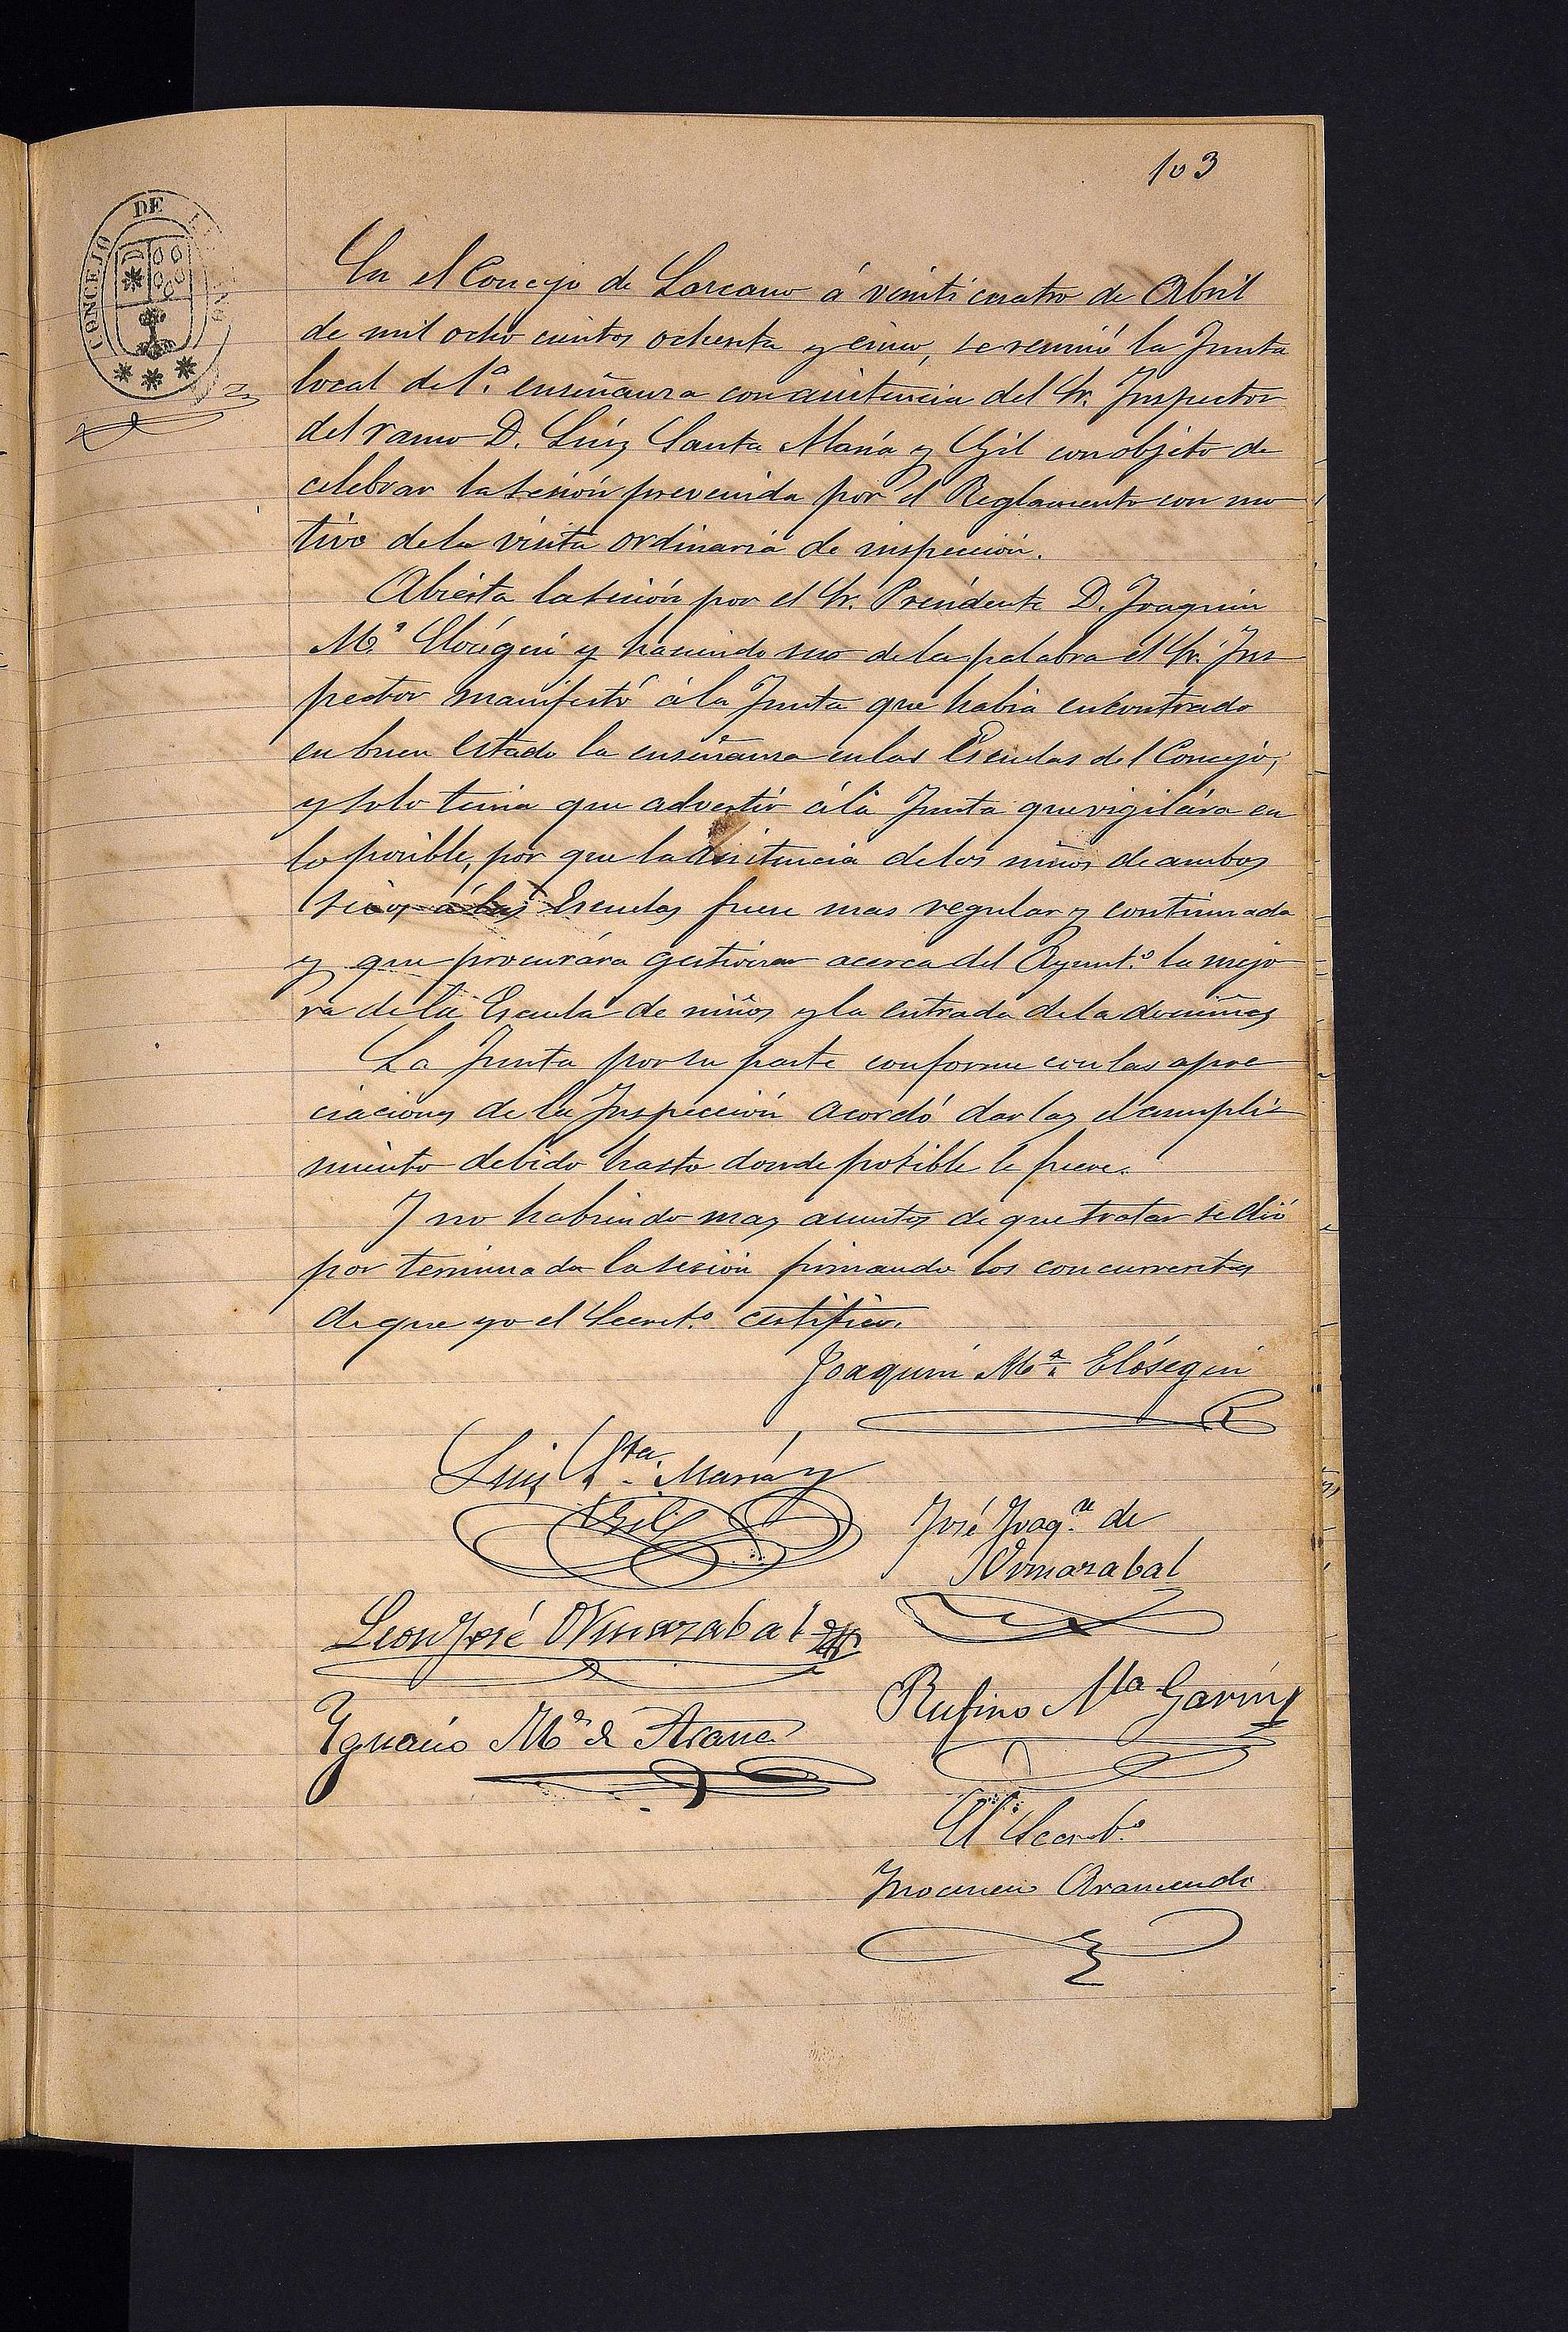 103
CONCEJO DE
En el Concejo de Lazcano á veinti cuatro de Abril
de mil ocho cientos ochenta y cinco, se reunió la Junta
local de 1.ª enseñanza con asistencia del Sr. Inspector
del ramo D. Luis Santa María y Gil con objeto de
celebrar la sesión prevenida por el Reglamento con mo
tivo de la visita ordinaria de inspección.
Abierta la sesión por el Sr. Presidente D. Joaquin
M.ª Elósegui y haciendo uso de la palabra el Sr. Ins
pector manifestó á la Junta que habia encontrado
en buen estado la enseñanza en las Escuelas del Concejo,
y solo tenia que advertir á la Junta que vigilára en
lo posible, por que la asistencia de los niños de ambos
sexos á las Escuelas fuese mas regular y continuada
y que procurára gestionar acerca del Ayunt.º la mejo
ra de la Escuela de niños y la entrada de la de niñas
La Junta por su parte conforme con las apre
ciaciones de la Inspección acordó darlas el cumpli
miento debido hasta donde posible le fuese.
Y no habiendo mas asuntos de que tratar se dió
por terminada la sesión firmando los concurrentes
de que yo el Secret.º certifico.
Joaquin M.ª Elósegui
Luis Sta. María y
Gil
José Joaq.n de
Ormazabal
Leon José Ormazabal
Rufino Ma Garin
Ygnacio M.ª de Arana
El Secret.º
Inocencio Aramendi